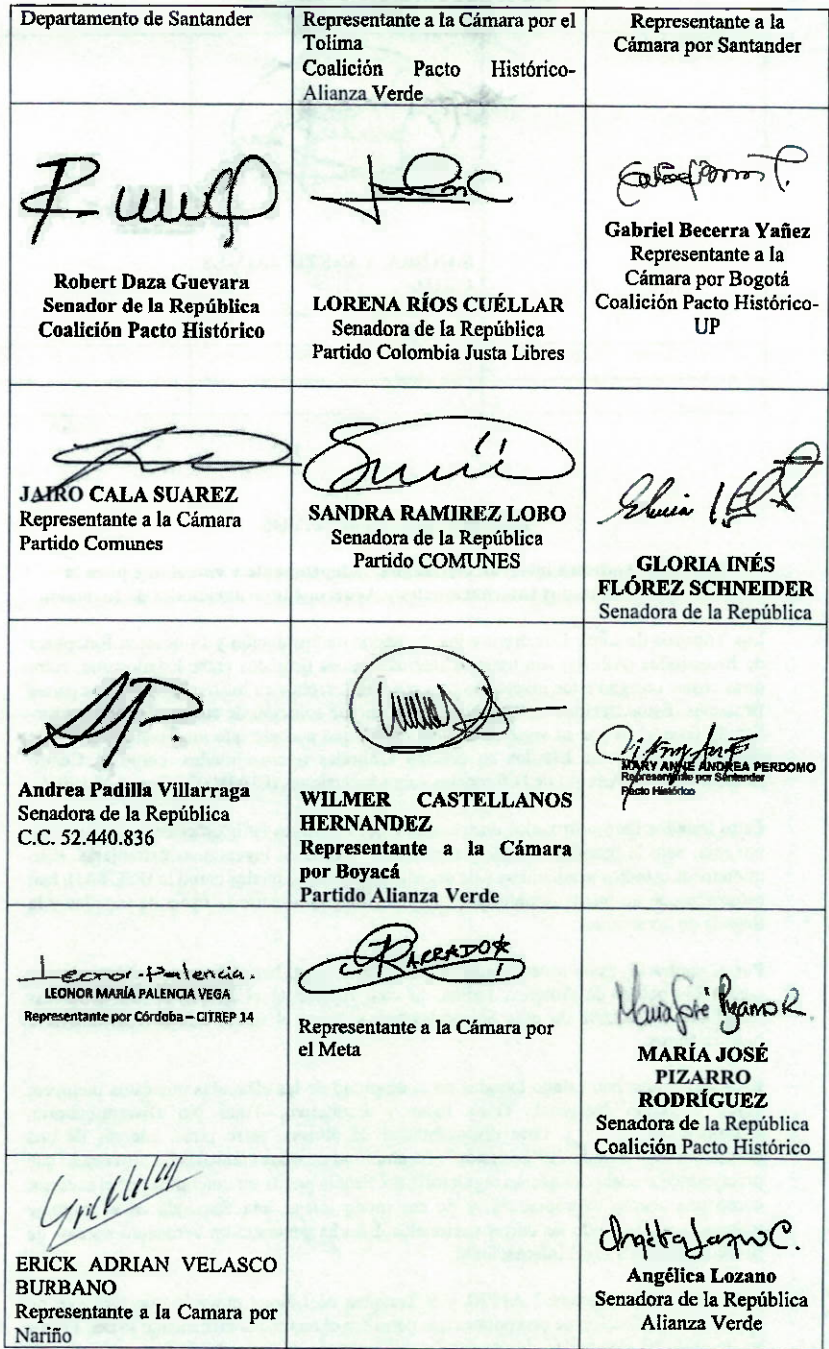 Departamento de Santander
Representante a la Cámara por el
Tolima
Coalición Pacto Histórico-
Alianza Verde
Representante a la
Cámara por Santander
Robert Daza Guevara
Senador de la República
Coalición Pacto Histórico
LORENA RÍOS CUÉLLAR
Senadora de la República
Partido Colombia Justa Libres
Gabriel Becerra Yañez
Representante a la
Cámara por Bogotá
Coalición Pacto Histórico-
UP
JAIRO CALA SUAREZ
Representante a la Cámara
Partido Comunes
SANDRA RAMIREZ LOBO
Senadora de la República
Partido COMUNES
GLORIA INÉS
FLÓREZ SCHNEIDER
Senadora de la República
Andrea Padilla Villarraga
Senadora de la República
C.C. 52.440.836
WILMER CASTELLANOS
HERNANDEZ
Representante a la Cámara
por Boyacá
Partido Alianza Verde
MARY ANNE ANDREA PERDOMO
Representante por Santander
Pacto Histórico
Leonor Palencia.
LEONOR MARÍA PALENCIA VEGA
Representante por Córdoba – CITREP 14
Representante a la Cámara por
el Meta
María José Pizarro R.
MARÍA JOSÉ
PIZARRO
RODRÍGUEZ
Senadora de la República
Coalición Pacto Histórico
ERICK ADRIAN VELASCO
BURBANO
Representante a la Camara por
Nariño
Angélica Lozano C.
Angélica Lozano
Senadora de la República
Alianza Verde